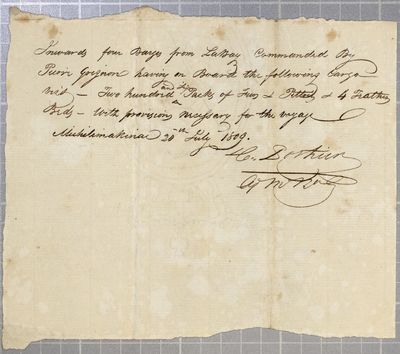 Inwards four Barges from LaBay Commanded By
Pierre Grignon having on Board the following Cargo
viz - Two hundred and Packs of Furs & & 4 Feather
Beds - With provisions necessary for the voyage
Michilimakinac 20th July 1809.